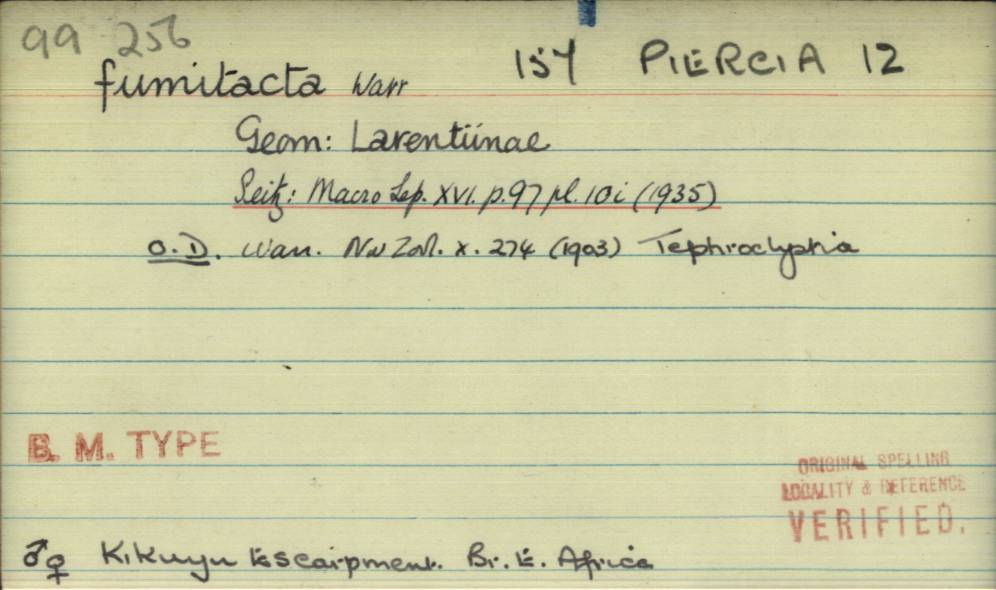 99 256
fumitacta Warr 154 PIERCIA 12
Geom: Larentiinae
Seitz: Macro Lep. XVI. p.97 pl. 10i (1935)
O.D. Warr. Nov Zool. x. 274 (1903) Tephroclystia
B. M. TYPE
ORIGINAL SPELLING
LOCALITY & REFERENCE
VERIFIED.
♂♀ Kikuyu Escarpment. Br. E. Africa